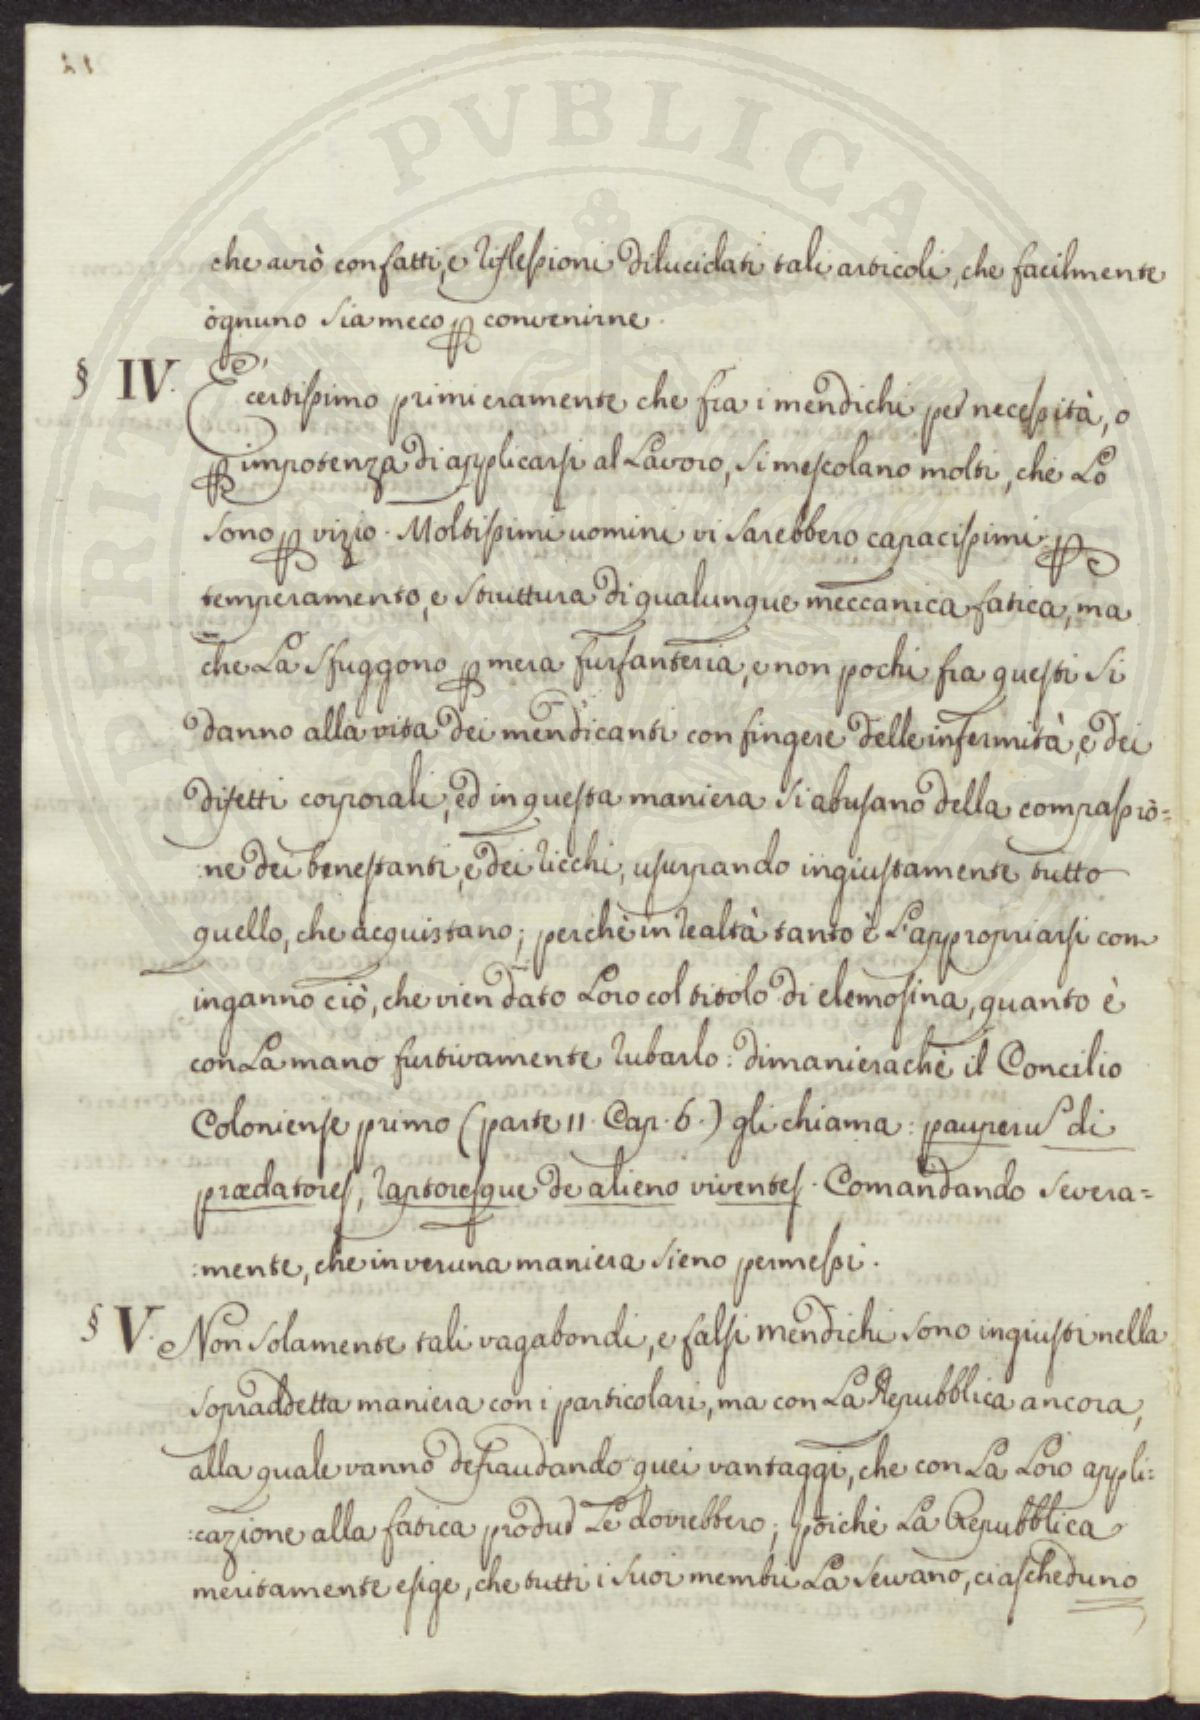 PERITVRI PVBLICAE
che avrò con fatti, e riflessioni dilucidati tali articoli, che facilmente
ognuno sia meco p convenirne.
§ IV. È certissimo primieramente che fra i mendichi per necessità, o
p impotenza di applicarsi al Lavoro, si mescolano molti, che Lo
sono p vizio. Moltissimi uomini vi sarebbero capacissimi p
temperamento, e struttura di qualunque meccanica fatica, ma
che La sfuggono p mera furfanteria, e non pochi fra questi si
danno alla vita dei mendicanti con fingere delle infermità, e dei
difetti corporali, ed in questa maniera si abusano della compassio=
:ne dei benestanti, e dei ricchi, usurpando ingiustamente tutto
quello, che acquistano; perchè in realtà tanto è L'appropriarsi con
inganno ciò, che vien dato Loro col titolo di elemosina, quanto è
con La mano furtivamente rubarlo: dimanierachè il Concilio
Coloniense primo (parte 11. Cap. 6.) gli chiama: pauperus di
prædatores, raptoresque de alieno viventes. Comandando severa=
:mente, che in veruna maniera sieno permessi.
§ V. Non solamente tali vagabondi, e falsi mendichi sono ingiusti nella
sopraddetta maniera con i particolari, ma con La Repubblica ancora,
alla quale vanno defraudando quei vantaggi, che con La Loro appli:
:cazione alla fatica produr Le dovrebbero; poichè La Repubblica
meritamente esige, che tutti i suoi membri La servano, ciascheduno